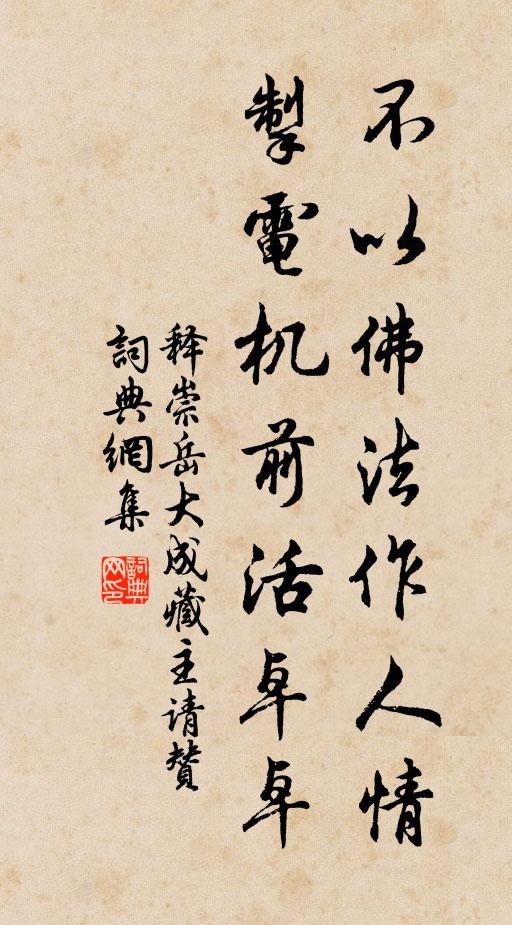 不以佛法作人情
掣電机前活卓卓
释崇岳大成藏主请赞
詞典網集
詞典
网印